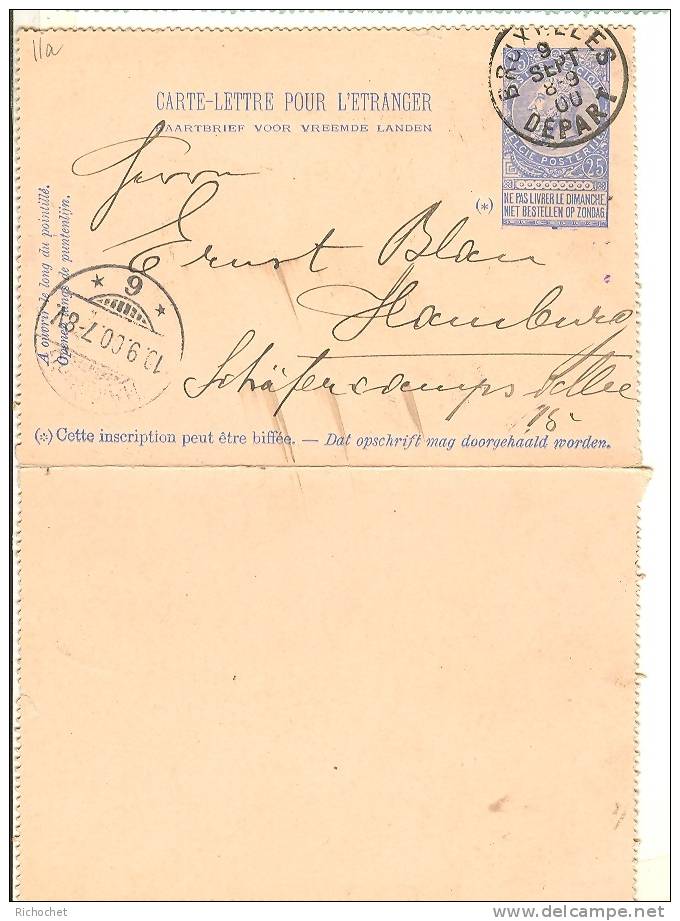 11a
BRUXELLES
9
SEPT
8-9
00
DEPART
25
25
NE PAS LIVRER LE DIMANCHE
NIET BESTELLEN OP ZONDAG
CARTE-LETTRE POUR L'ETRANGER
KAARTBRIEF VOOR VREEMDE LANDEN
(*)
Herrn
Ernst Blan
Hamburg
Schäfercampsallee
A ouvrir le long du pointillé.
Openen langs de puntenlijn.
* 6 *
10.9.00.7-8V.
(*) Cette inscription peut être biffée. — Dat opschrift mag doorgehaald worden.
Richochet
delcampe.net